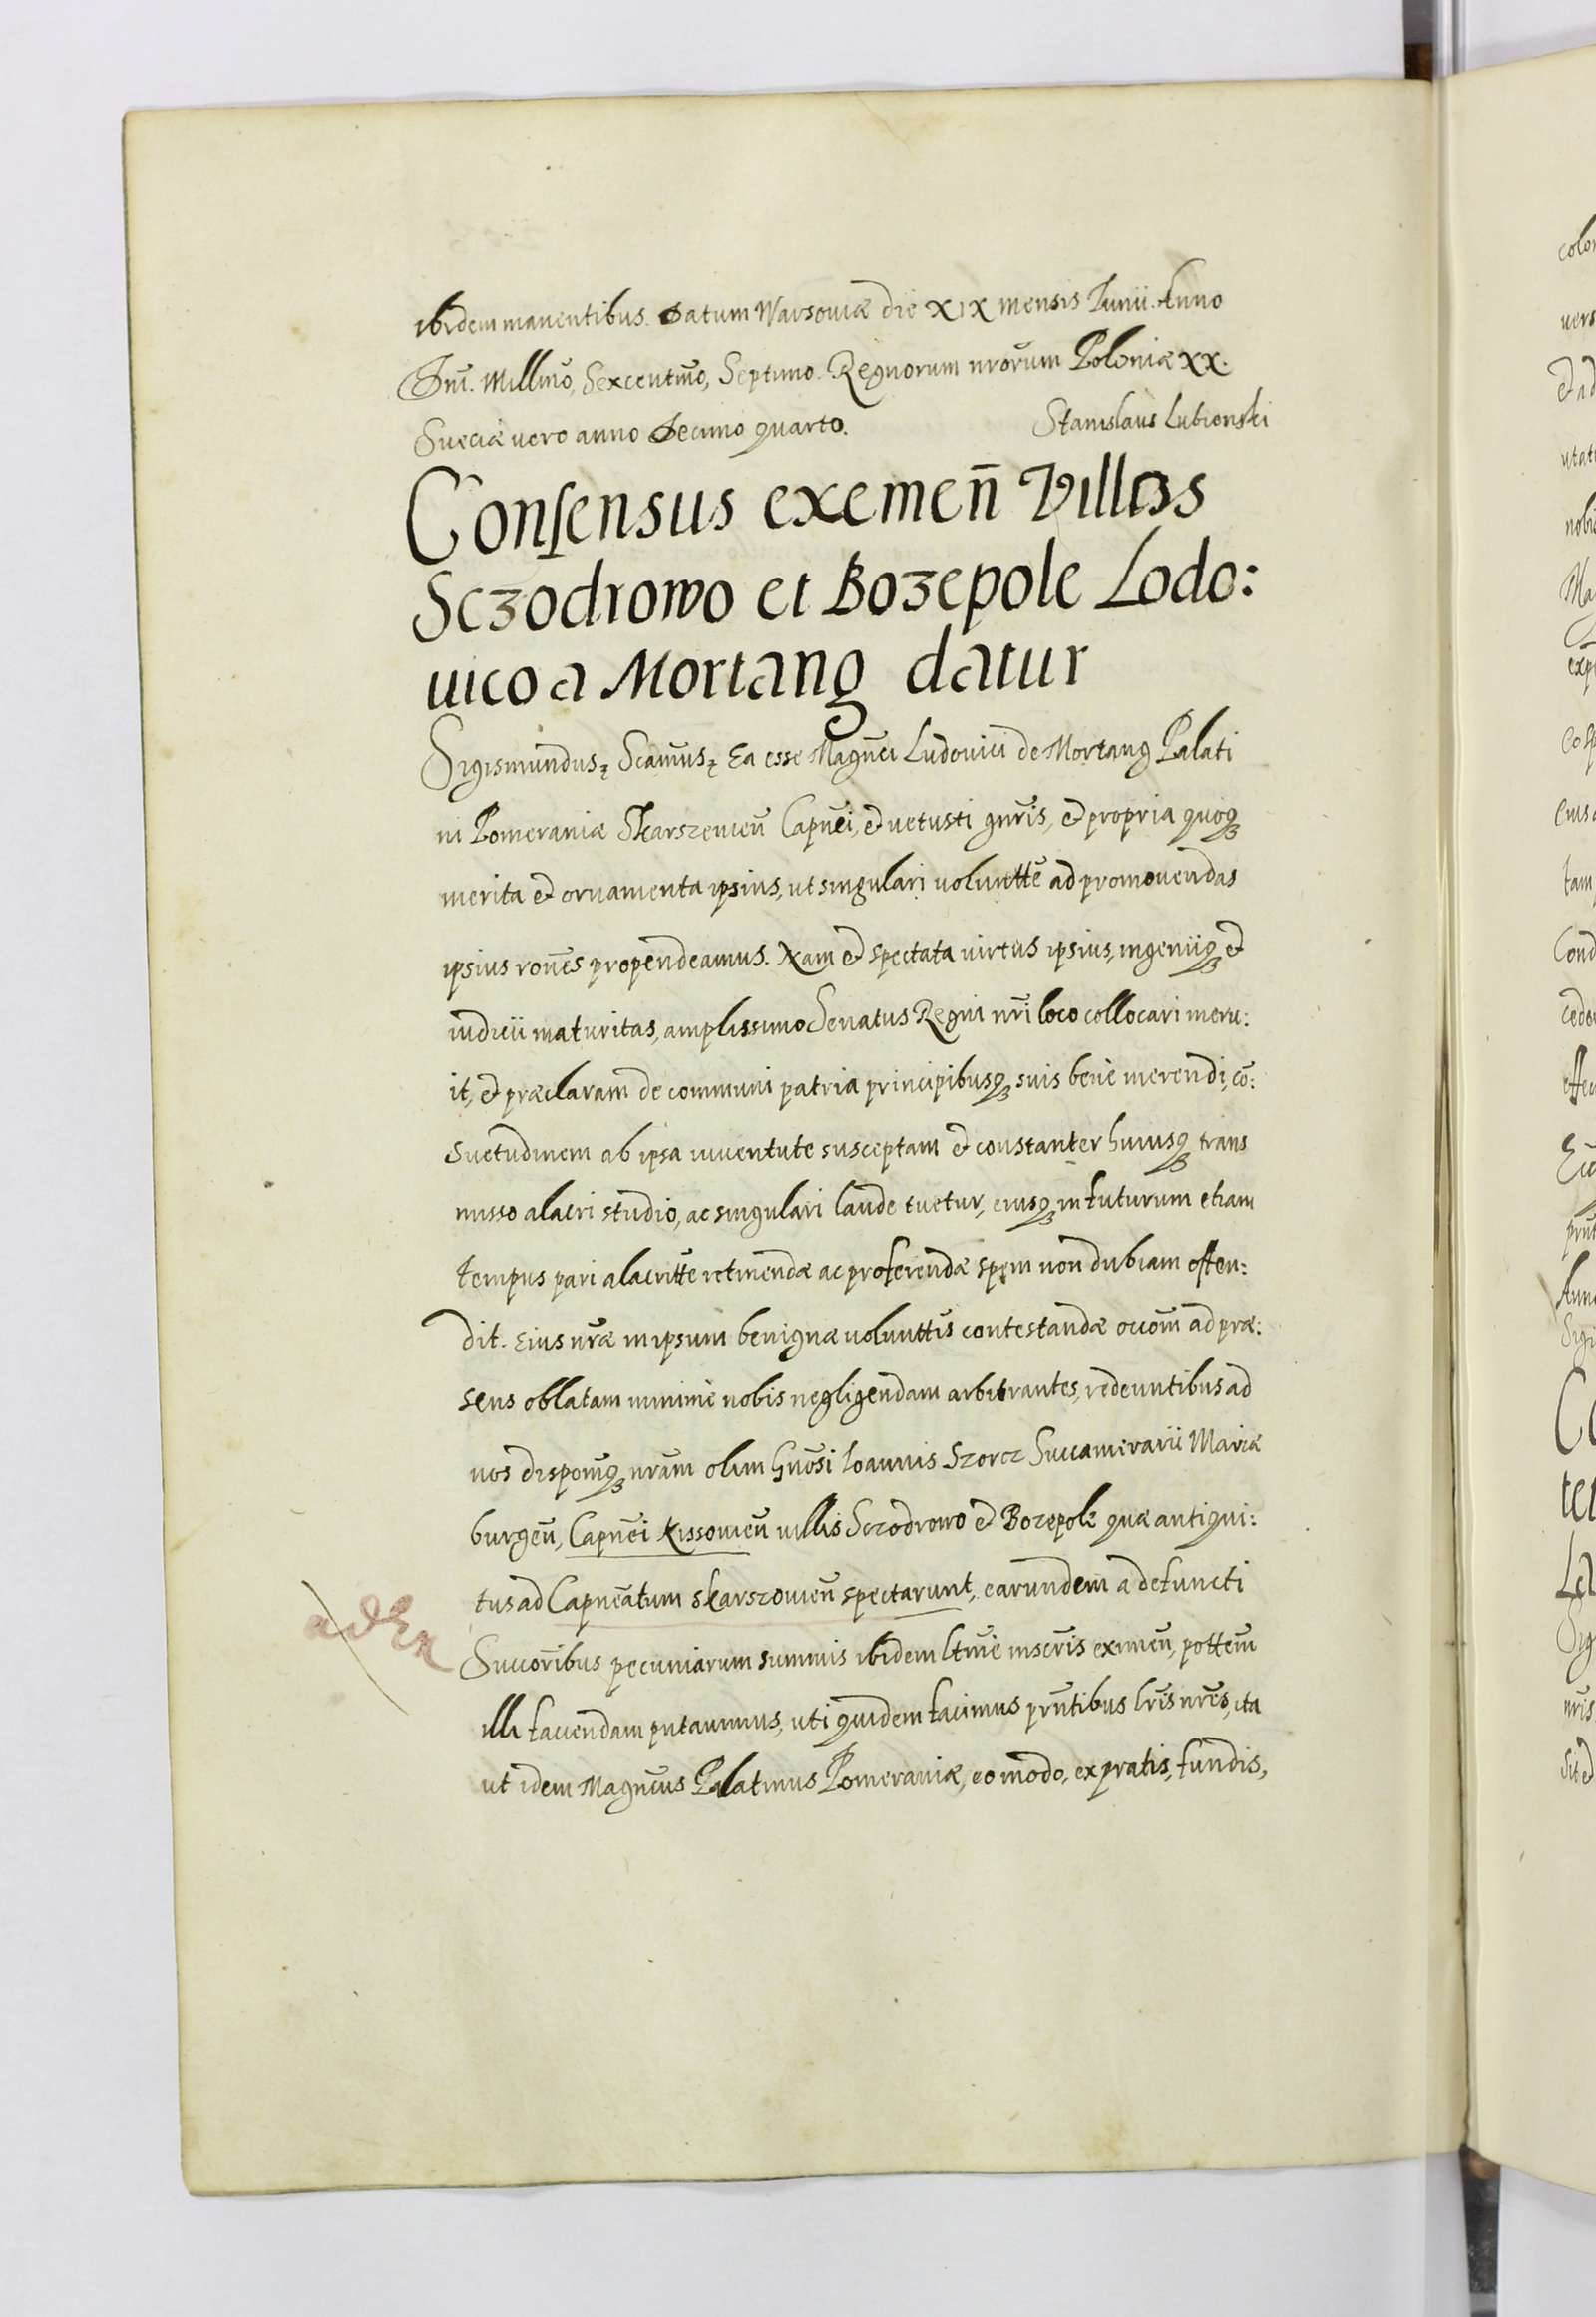 ibidem manentibus. Datum Warsoviæ die XIX mensis Iunii. Anno
Dnĩ. Millmõ, Sexcentmõ, Septimo. Regnorum nrõrum Poloniæ XX.
Sueciæ vero anno Decimo quarto. Stanislaus Lubienski
Consensus exemeñ Villas
Sczodrowo et Bozepole Lodo:
uico a Mortang datur
Sigismundus ꝛ Scamũs ꝛ Ea esse Magnci Ludovici de Mortang Palati
ni Pomeraniæ Skarszevieñ Capnei, et vetusti gnris, et propria quoqꝫ
merita et ornamenta ipsius, ut singulari volunttẽ ad promovendas
ipsius rones propendeamus. Nam et spectata virtus ipsius, ingeniiqꝫ et
iudicii maturitas, amplissimo Senatus Regni nrĩ loco collocari meru:
it, et præclaram de communi patria principibusqꝫ suis bene merendi, cõ:
suetudinem ab ipsa iuventute susceptam et constanter huiusqꝫ trans
misso alacri studio, ac singulari laude tuetur, eiusqꝫ in futurum etiam
tempus pari alacrittẽ retinendæ ac proferendæ spem non dubiam osten:
dit. Eius nrẽ in ipsum benignæ volunttis contestandæ occom̃ ad præ:
sens oblatam minime nobis negligendam arbitrantes, redeuntibus ad
nos disponẽqꝫ nrãm olim Gnõsi Ioannis Szorcz Succamerarii Mariæ
burgeñ, Capnei Kissovieñ villis Sczodrowo et Bozepole quæ antiqui:
tus ad Capneatum skarszovieñ spectarunt, earundem a defuncti
ad Ex
Succoribus pecuniarum summis ibidem ltmẽ inscris eximeñ, pottem̃
illi faciendam putavimus, uti quidem facimus prñtibus lrĩs nrĩs, ita
ut idem Magncus Palatinus Pomeraniæ, eo modo, ex pratis, fundis,